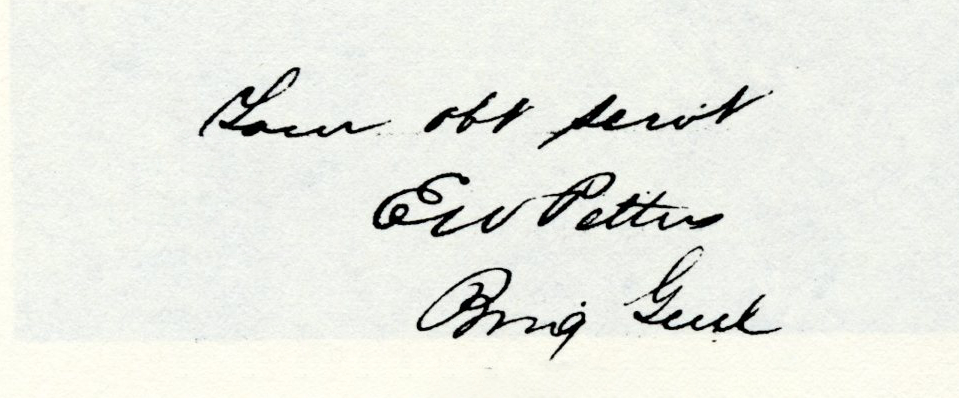 Your obt servt
E W Pettus
Brig Genl